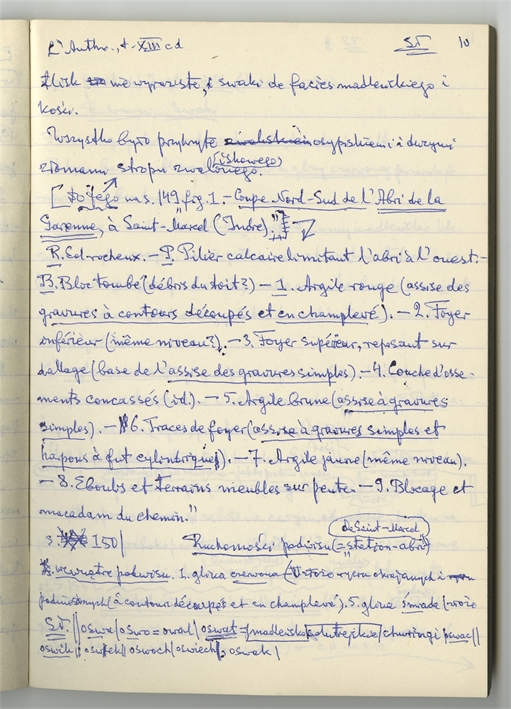 L'Anthr., t. XIII cd ST 10
zlisk nie wyraziste, i swaki de faciès madleńskiego i
kości.
Wszystko było przykryte osypiskiem i dużymi
złomami stropu zwaliskowego.
[Do tego na s. 149 fig. 1. – "Coupe Nord-Sud de l'Abri de la
Garenne, à Saint-Marcel (Indre)."]
R. Sol rocheux. – P. Pilier calcaire limitant l'abri à l'ouest. –
B. Bloc tombé (débris du toit?) – 1. Argile rouge (assise des
gravures à contours découpés et en champlevé). – 2. Foyer
inférieur (même niveau?). – 3. Foyer supérieur, reposant sur
dallage (base de l'assise des gravures simples). – 4. Couche d'osse-
ments concassés (id.). – 5. Argile brune (assise à gravures
simples). – 6. Traces de foyer (assise à gravures simples et
harpons à fut cylindrique). – 7. Argile jaune (même niveau).
– 8. Eboulis et terrains meubles sur pente. – 9. Blocage et
macadam du chemin."
s. 150 | Ruchomości podwisu (= "station-abri" de Saint-Marcel)
wewnątrz podwisu. 1. glina czerwona
(à contour découpés et en champlevé). 5. glina śniada
ST. || oswx | oswo = owal | oswat = churingi oswac ||
oswik | oswoch | oswiech | oswak |